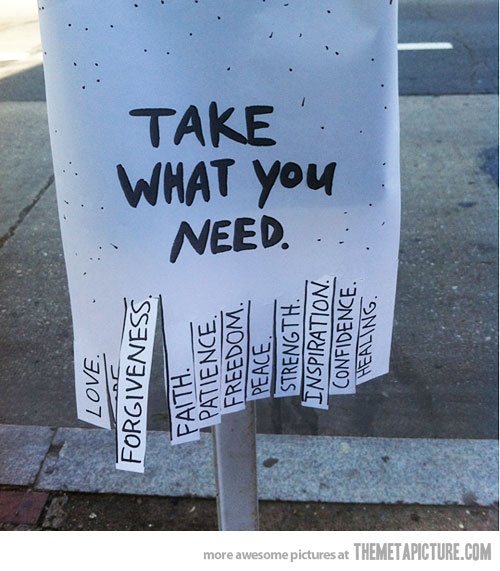 TAKE
WHAT YOU
NEED.
LOVE.
FORGIVENESS.
FAITH.
PATIENCE.
FREEDOM.
PEACE.
STRENGTH.
INSPIRATION.
CONFIDENCE.
HEALING.
more awesome pictures at THEMETAPICTURE.COM